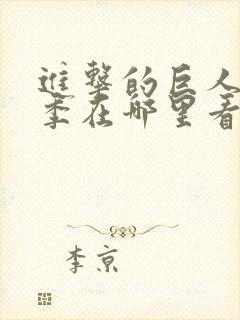 進擊的巨人
季在哪里看
李京